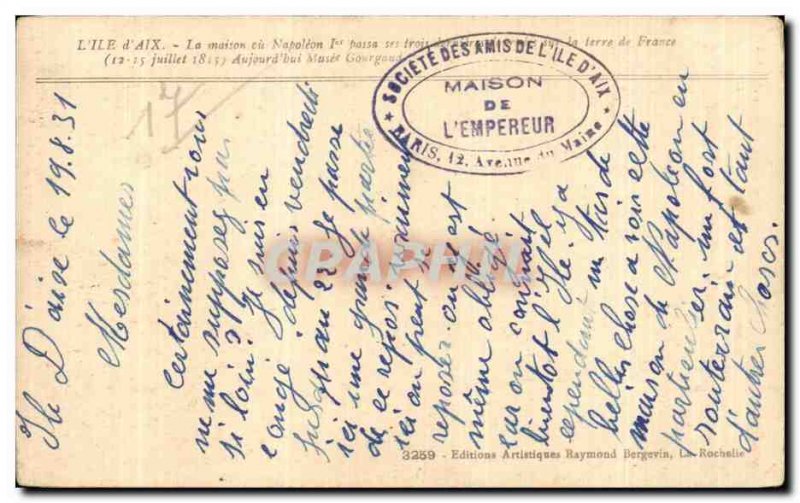 L'ILE d'AIX. - La maison où Napoléon Ier passa ses trois sur la terre de France
(12-15 juillet 1815) Aujourd'hui Musée Gourgaud
SOCIÉTÉ DES AMIS DE L'ILE D'AIX
MAISON
DE
L'EMPEREUR
PARIS, 12, Avenue du Maine
17
Ile D'aix le 19.8.31
Mesdames
Certainement vous
ne me supposez pas
si loin? Je suis en
congé depuis vendredi
jusqu'au 22. Je passe
ici une grande partie
de ce repos vraiment
ici on peut se
reposer on y est
même obligé
car on connait
bientot l'
cependant un tas de
belles choses a voir cette
maison de Napoleon en
particulier un fort
souterrain et tant
d'autres choses.
CPAPHIL
3259 - Editions Artistiques Raymond Bergevin, La Rochelle